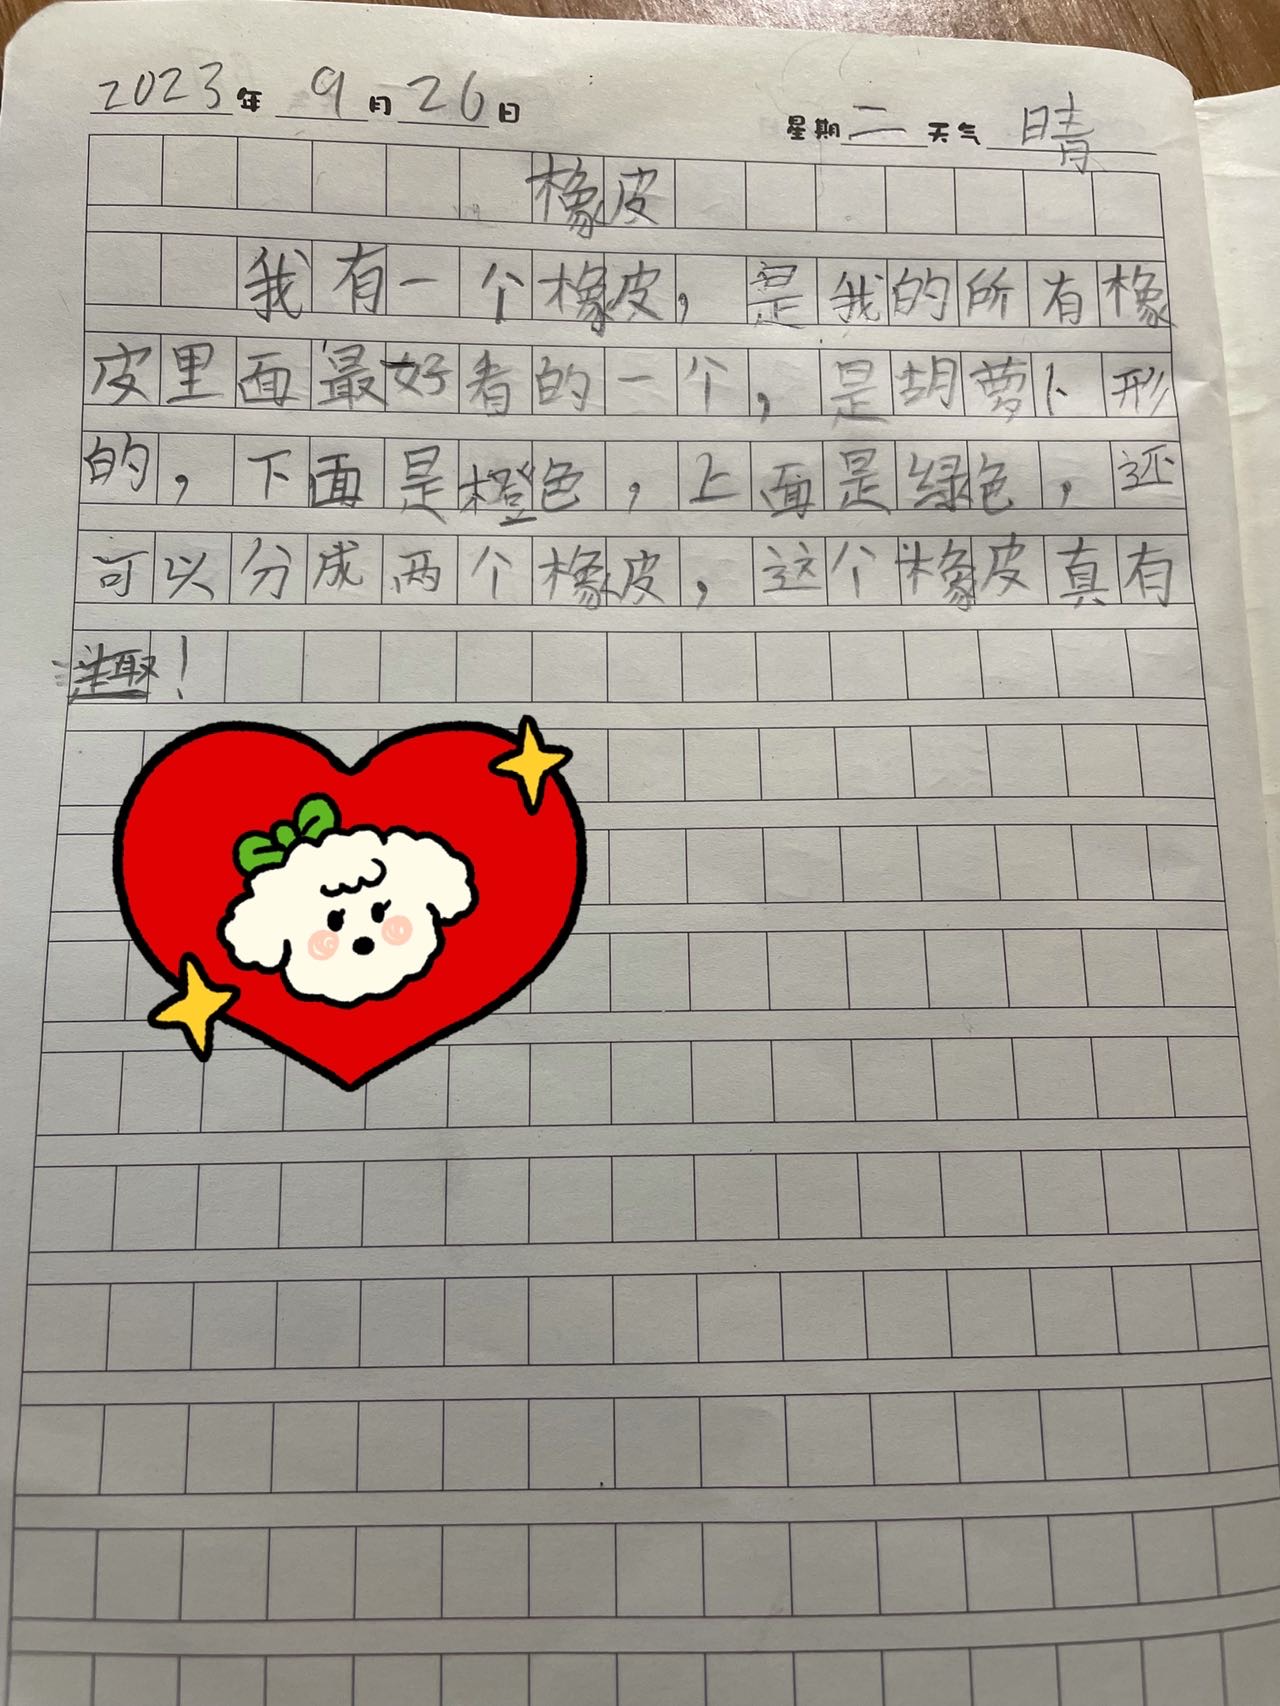 2023年 9月26日 星期二 天气 晴
橡皮
我有一个橡皮，是我的所有橡
皮里面最好看的一个，是胡萝卜形
的，下面是橙色，上面是绿色，还
可以分成两个橡皮，这个橡皮真有
趣！